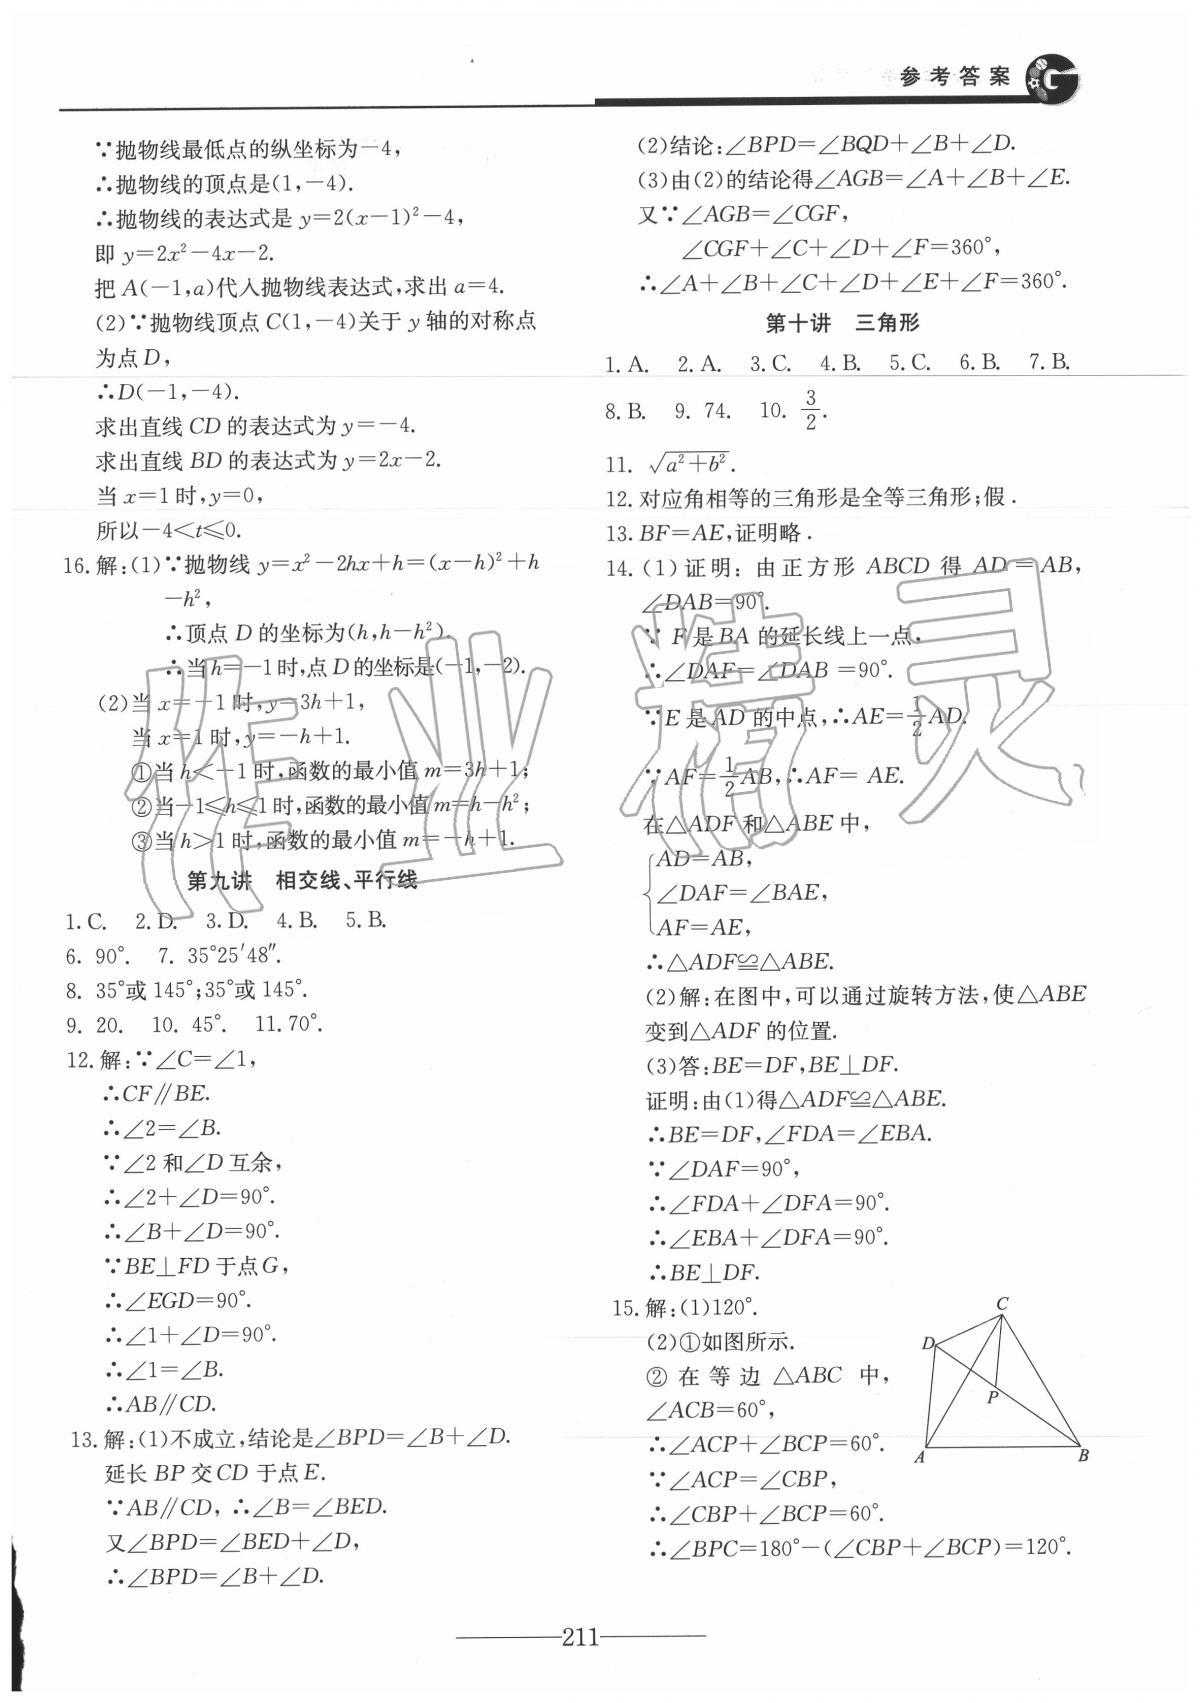 参考答案
∵抛物线最低点的纵坐标为-4，
∴抛物线的顶点是(1,-4).
∴抛物线的表达式是 y=2(x-1)²-4，
即 y=2x²-4x-2.
把 A(-1,a)代入抛物线表达式,求出 a=4.
(2)∵抛物线顶点 C(1,-4)关于 y 轴的对称点
为点 D，
∴D(-1,-4).
求出直线 CD 的表达式为 y=-4.
求出直线 BD 的表达式为 y=2x-2.
当 x=1 时,y=0，
所以-4<t≤0.
16. 解:(1)∵抛物线 y=x²-2hx+h=(x-h)²+h
-h²，
∴顶点 D 的坐标为(h,h-h²).
∴当 h=-1 时,点 D 的坐标是(-1,-2).
(2)当 x=-1 时,y=3h+1，
当 x=1 时,y=-h+1.
①当 h<-1 时,函数的最小值 m=3h+1;
②当-1≤h≤1 时,函数的最小值 m=h-h²;
③当 h>1 时,函数的最小值 m=-h+1.
第九讲 相交线、平行线
1. C. 2. D. 3. D. 4. B. 5. B.
6. 90°. 7. 35°25′48″.
8. 35°或 145°;35°或 145°.
9. 20. 10. 45°. 11. 70°.
12. 解:∵∠C=∠1，
∴CF∥BE.
∴∠2=∠B.
∵∠2 和∠D 互余，
∴∠2+∠D=90°.
∴∠B+∠D=90°.
∵BE⊥FD 于点 G，
∴∠EGD=90°.
∴∠1+∠D=90°.
∴∠1=∠B.
∴AB∥CD.
13. 解:(1)不成立,结论是∠BPD=∠B+∠D.
延长 BP 交 CD 于点 E.
∵AB∥CD，∴∠B=∠BED.
又∠BPD=∠BED+∠D，
∴∠BPD=∠B+∠D.
(2)结论:∠BPD=∠BQD+∠B+∠D.
(3)由(2)的结论得∠AGB=∠A+∠B+∠E.
又∵∠AGB=∠CGF，
∠CGF+∠C+∠D+∠F=360°，
∴∠A+∠B+∠C+∠D+∠E+∠F=360°.
第十讲 三角形
1. A. 2. A. 3. C. 4. B. 5. C. 6. B. 7. B.
8. B. 9. 74. 10. 3/2.
11. √(a²+b²).
12. 对应角相等的三角形是全等三角形;假.
13. BF=AE,证明略.
14. (1)证明：由正方形 ABCD 得 AD=AB，
∠DAB=90°.
∵F 是 BA 的延长线上一点，
∴∠DAF=∠DAB=90°.
∵E 是 AD 的中点,∴AE=1/2AD.
∵AF=1/2AB,∴AF=AE.
在△ADF 和△ABE 中，
AD=AB，
∠DAF=∠BAE，
AF=AE，
∴△ADF≌△ABE.
(2)解:在图中,可以通过旋转方法,使△ABE
变到△ADF 的位置.
(3)答:BE=DF,BE⊥DF.
证明:由(1)得△ADF≌△ABE.
∴BE=DF,∠FDA=∠EBA.
∵∠DAF=90°，
∴∠FDA+∠DFA=90°.
∴∠EBA+∠DFA=90°.
∴BE⊥DF.
15. 解:(1)120°.
(2)①如图所示.
②在等边△ABC 中，
∠ACB=60°，
∴∠ACP+∠BCP=60°.
∵∠ACP=∠CBP，
∴∠CBP+∠BCP=60°.
∴∠BPC=180°-(∠CBP+∠BCP)=120°.
C
D
P
A
B
211
作业精灵